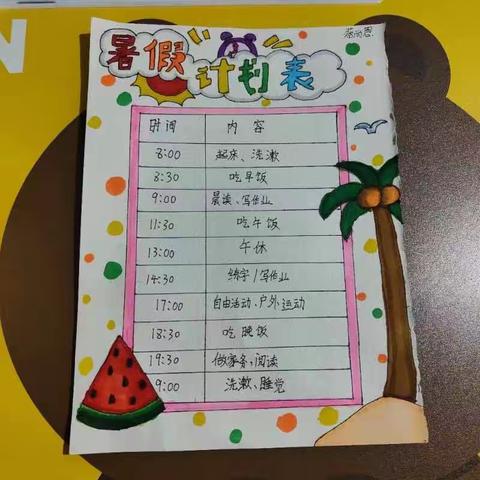 暑假计划表
时间 内容
8:00 起床、洗漱
8:30 吃早饭
9:00 晨读、写作业
11:30 吃午饭
13:00 午休
14:30 练字/写作业
17:00 自由活动、户外运动
18:30 吃晚饭
19:30 做家务,阅读
9:00 洗漱、睡觉